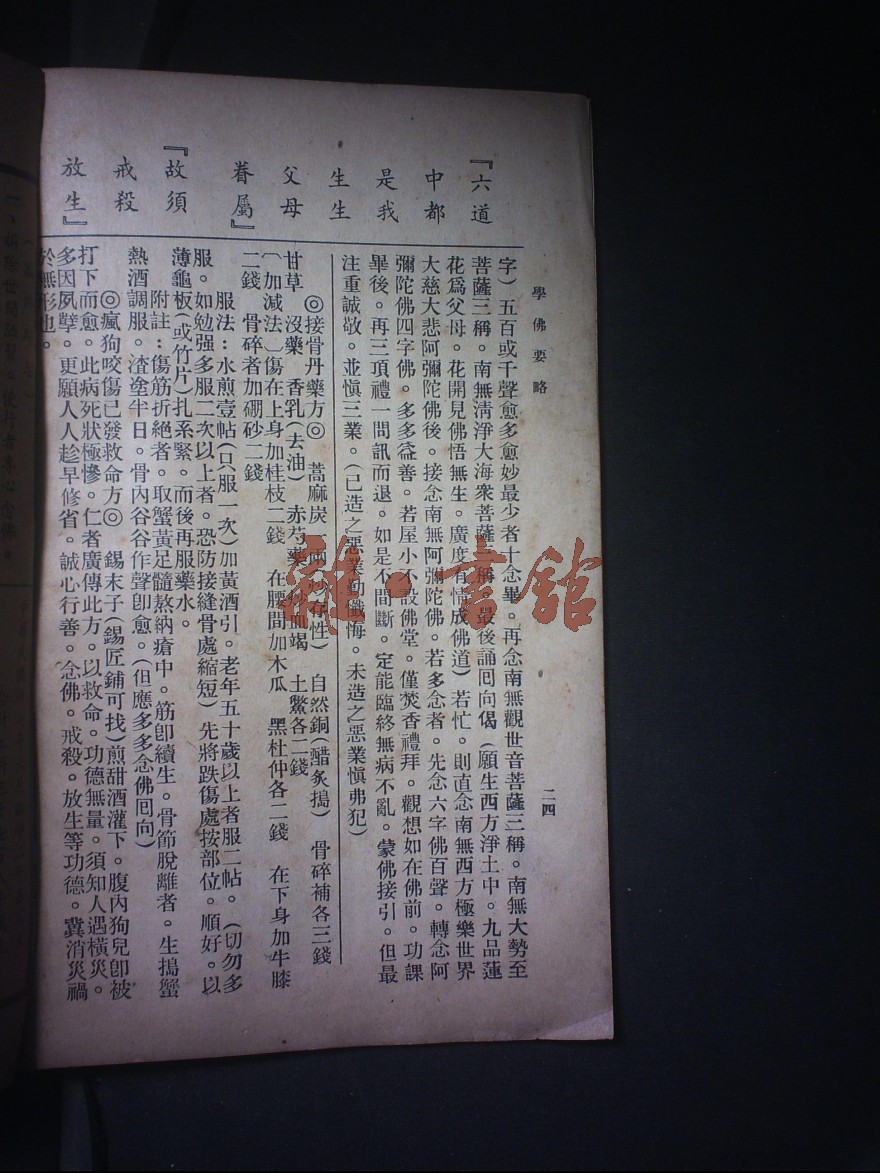 學佛要略
二四
『六道
中都
是我
生生
父母
眷屬』
『故須
戒殺
放生』
字）五百或千聲愈多愈妙最少者十念畢。再念南無觀世音菩薩三稱。南無大勢至
菩薩三稱。南無淸淨大海衆菩薩三稱。最後誦囘向偈（願生西方淨土中。九品蓮
花爲父母。花開見佛悟無生。廣度有情成佛道）若忙。則直念南無西方極樂世界
大慈大悲阿彌陀佛後。接念南無阿彌陀佛。若多念者。先念六字佛百聲。轉念阿
彌陀佛四字佛。多多益善。若屋小不設佛堂。僅焚香禮拜。觀想如在佛前。功課
畢後。再三項禮一問訊而退。如是不間斷。定能臨終無病不亂。蒙佛接引。但最
注重誠敬。並愼三業。（已造之惡業勤懺悔。未造之惡業愼弗犯）
◎接骨丹藥方◎　蒿麻炭　存性）　自然銅（醋炙搗）　骨碎補各三錢
甘草　沒藥　香乳（去油）　赤芍藥　血竭　土鱉各二錢
（加減法）傷在上身加桂枝二錢　在腰間加木瓜　黑杜仲各二錢　在下身加牛膝
二錢　骨碎者加硼砂二錢
服法：水煎壹帖（只服一次）加黃酒引。老年五十歲以上者服二帖。（切勿多
服。如勉强多服二次以上者。恐防接縫骨處縮短）先將跌傷處按部位。順好。以
薄龜板（或竹片）扎系緊。而後再服藥水。
附註：傷筋折絕者。取蟹黃足髓熬納瘡中。筋卽續生。骨節脫離者。生搗蟹
熱酒調服。渣塗半日。骨內谷谷作聲卽愈。（但應多多念佛囘向）
◎瘋狗咬傷已發救命方◎　錫末子（錫匠鋪可找）煎甜酒灌下。腹內狗兒卽被
打下而愈。此病死狀極慘。仁者廣傳此方。以救命。功德無量。須知人遇橫災。
多因夙孽。更願人人趁早修省。誠心行善。念佛。戒殺。放生等功德。冀消災禍
於無形也。
雜·書館